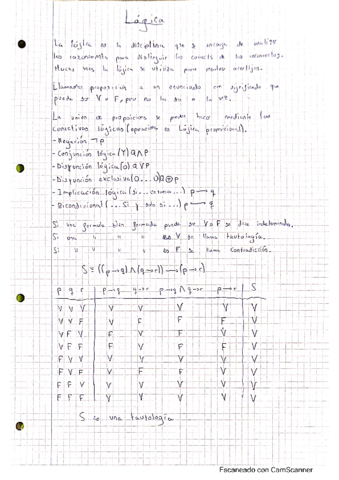 Lógica
La lógica es la disciplina que se encarga de analizar
los razonamientos para distinguir los correctos de los incorrectos.
Muchas veces la lógica se utiliza para
Llamamos proposición a un enunciado con significado que
puede ser V o F, pero no las dos a la vez.
La unión de proposiciones se puede hacer mediante los
conectivos lógicos (operaciones de Lógica proposicional).
- Negación ¬p
- Conjunción lógica (Y) q∧p
- Disyunción lógica (o) q∨p
- Disyunción exclusiva (o...o)
- Implicación lógica (si... entonces...) p→q
- Bicondicional (... Si y solo si...) p↔q
Si una formula bien formada puede ser V o F se dice indeterminada.
Si una " " " es V se llama tautología.
Si " " " " es F se llama contradicción.
S ≡ ((p→q)∧(q→r))→(p→r)
p q r p→q q→r p→q∧q→r p→r S
V V V V V V V V
V V F V F F F V
V F V F V F V V
V F F F V F F V
F V V V V V V V
F V F V F F V V
F F V V V V V V
F F F V V V V V
S es una tautología
Escaneado con CamScanner